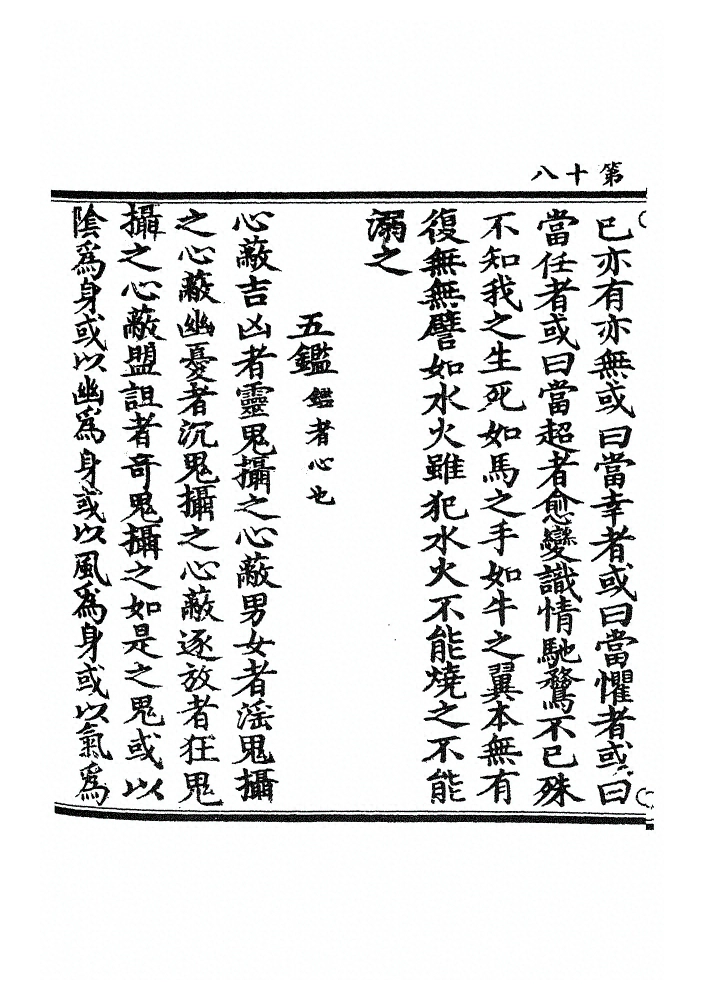 第十八
已亦有亦無或曰當幸者或曰當懼者或曰
當任者或曰當超者愈變識情馳騖不已殊
不知我之生死如馬之手如牛之翼本無有
復無無譬如水火雖犯水火不能燒之不能
溺之
五鑑 鑑者心也
心蔽吉凶者靈鬼攝之心蔽男女者淫鬼攝
之心蔽幽憂者沉鬼攝之心蔽逐放者狂鬼
攝之心蔽盟詛者奇鬼攝之如是之鬼或以
陰為身或以幽為身或以風為身或以氣為